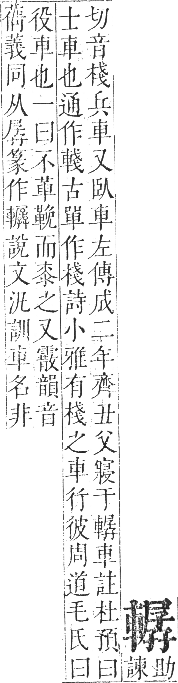 轏
助諫
切音棧兵車又臥車左傳成二年齊丑父寢于轏車註杜預曰
士車也通作輚古單作棧詩小雅有棧之車行彼周道毛氏曰
役車也一曰不革鞔而桼之又霰韻音
義同从孱篆作轏說文汎訓車名非